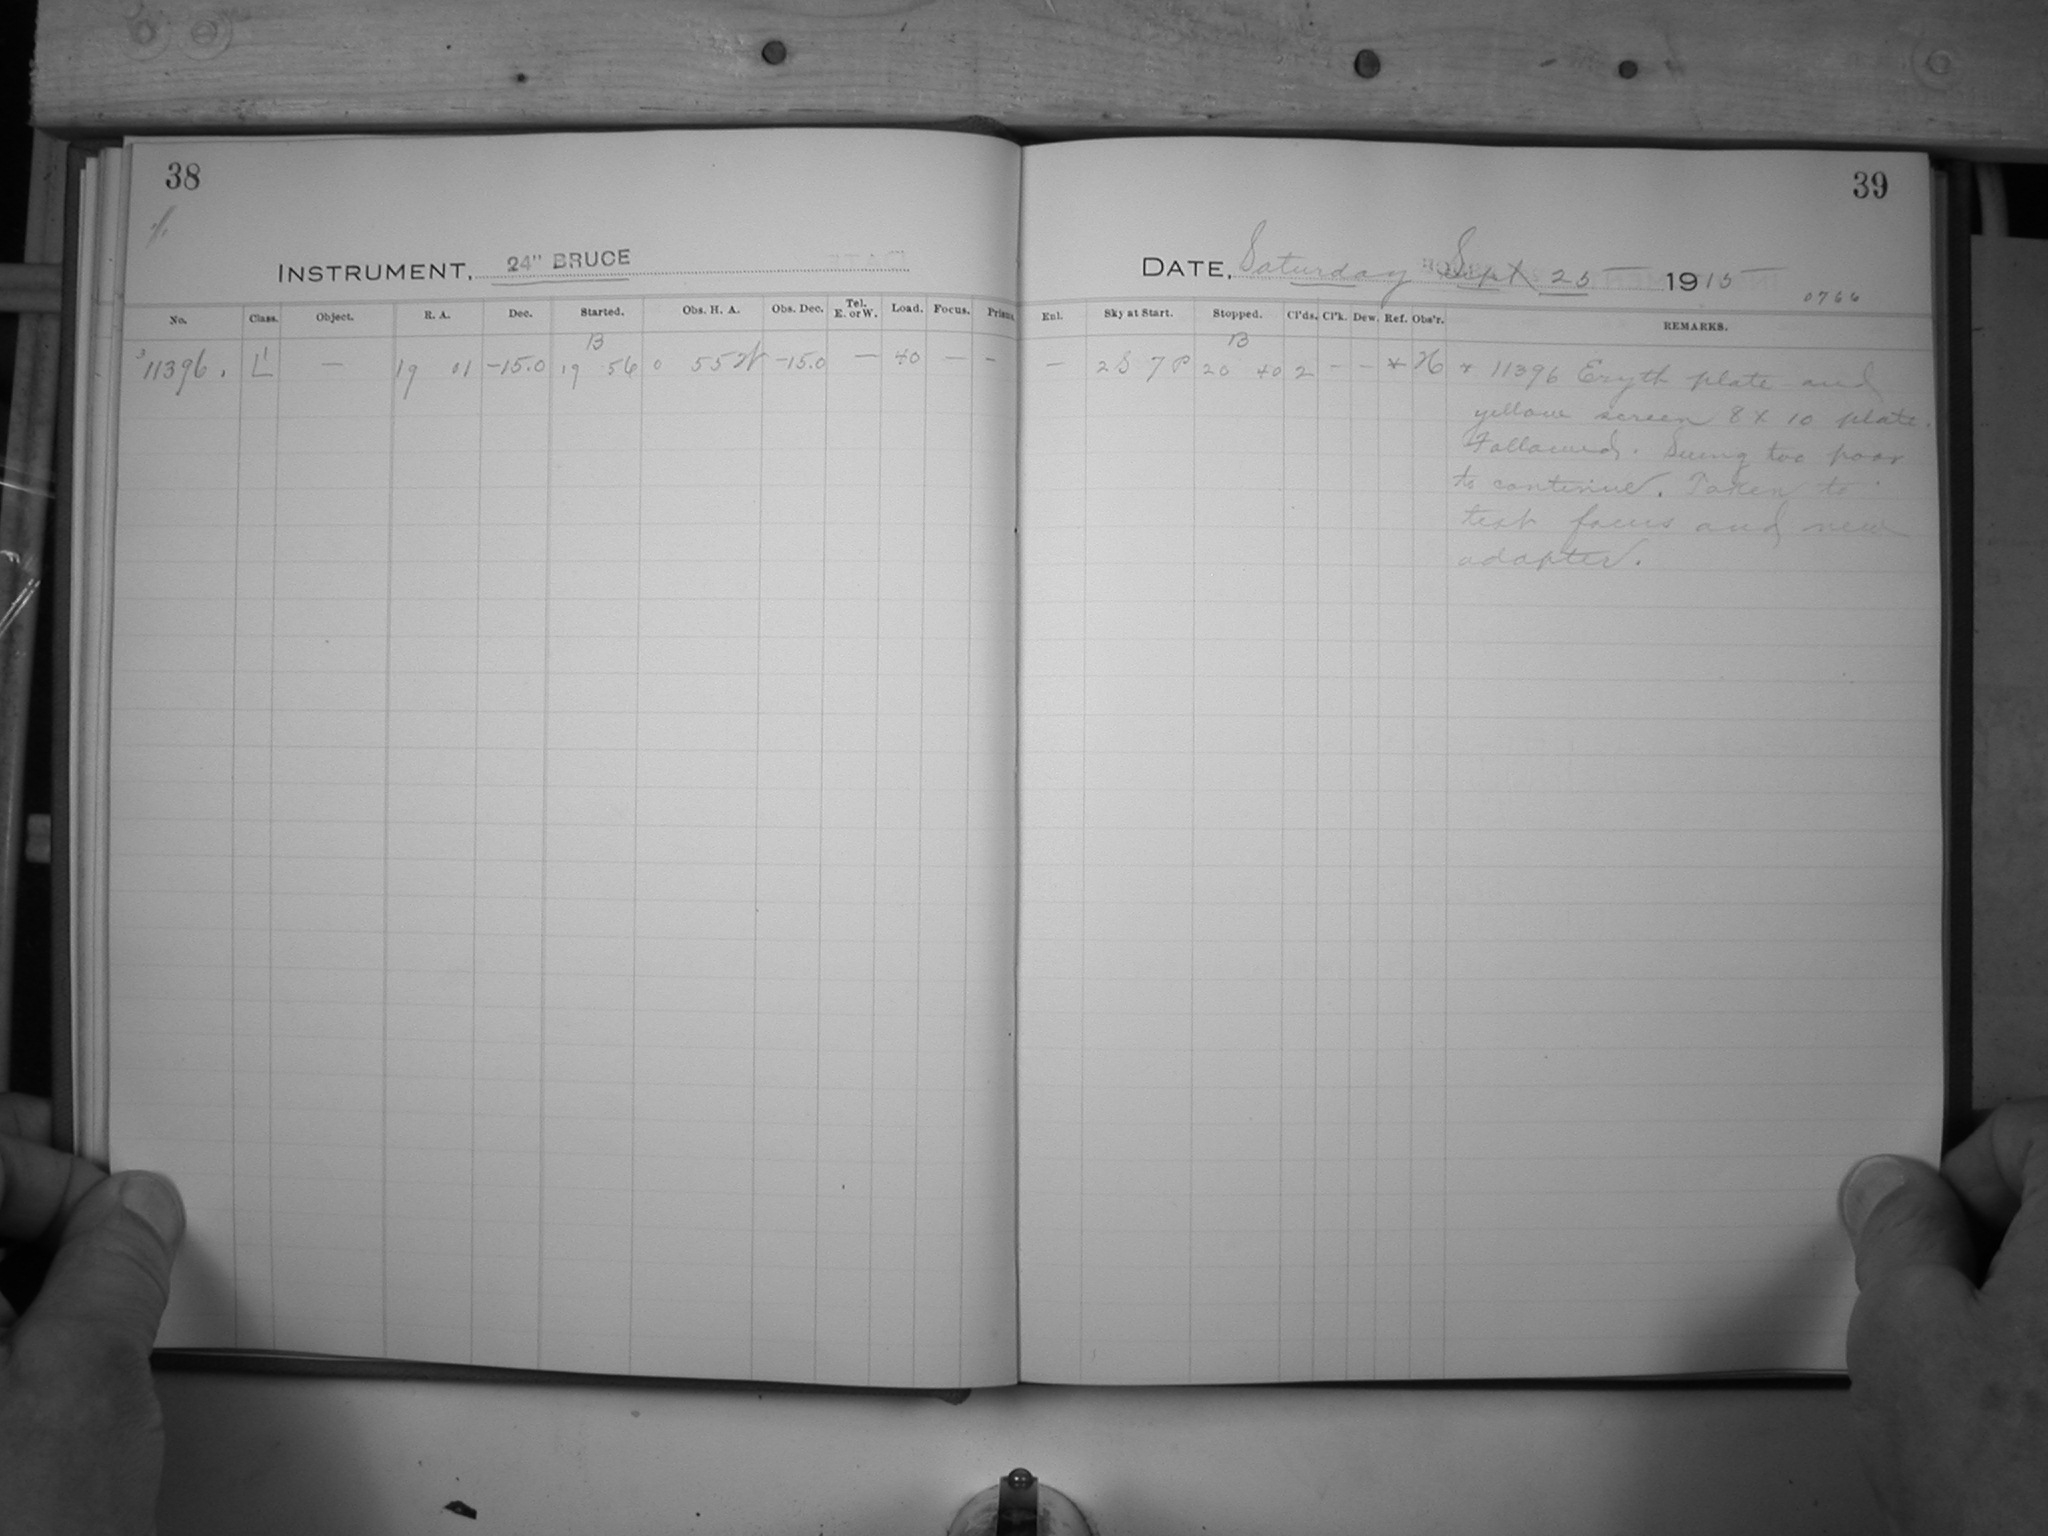 38
39
INSTRUMENT, 24" BRUCE
DATE, Saturday Sept 25 1915
0766
No. Class. Object. R. A. Dec. Started. Obs. H. A. Obs. Dec. Tel. E. or W. Load. Focus. Prisms.
Enl. Sky at Start. Stopped. Cl'ds. Cl'k. Dew. Ref. Obs'r. REMARKS.
B
B
3 11396. L' — 19 01 -15.0 19 56 0 55 W -15.0 — 40 — —
— 2 S 7 P 20 40 2 - - * H * 11396 Eryth plate and
yellow screen 8 x 10 plate.
Followed. Seeing too poor
to continue. Taken to
test focus and new
adapter.